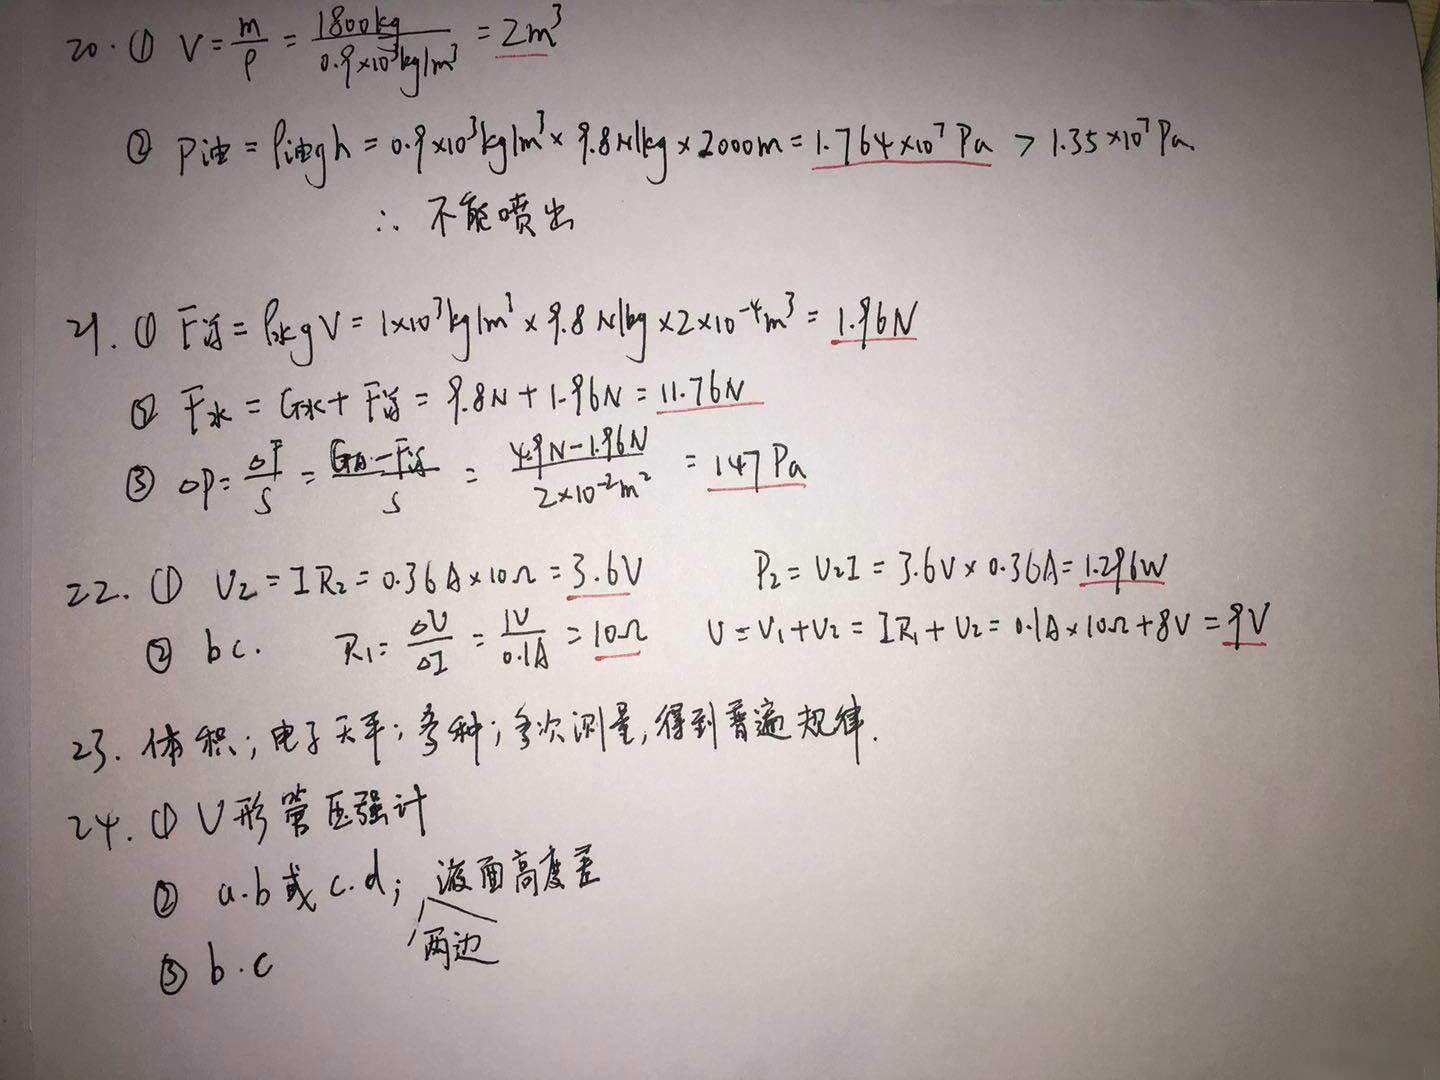 20. ① V = m/ρ = 1800kg / 0.9×10³kg/m³ = 2m³
② P油 = ρ油gh = 0.9×10³kg/m³ × 9.8N/kg × 2000m = 1.764×10⁷Pa > 1.35×10⁷Pa
∴ 不能喷出
21. ① F浮 = ρ水gV = 1×10³kg/m³ × 9.8N/kg × 2×10⁻⁴m³ = 1.96N
② F水 = G水 + F浮 = 9.8N + 1.96N = 11.76N
③ ΔP = ΔF/S = (G物 - F浮)/S = (4.9N - 1.96N) / 2×10⁻²m² = 147Pa
22. ① U₂ = IR₂ = 0.36A × 10Ω = 3.6V P₂ = U₂I = 3.6V × 0.36A = 1.296W
② bc. R₁ = ΔU/ΔI = 1V/0.1A = 10Ω U = U₁+U₂ = IR₁+U₂ = 0.1A×10Ω+8V = 9V
23. 体积; 电子天平; 多种; 多次测量, 得到普遍规律.
24. ① U形管压强计
② a.b或c.d; 液面高度差
两边
③ b.c